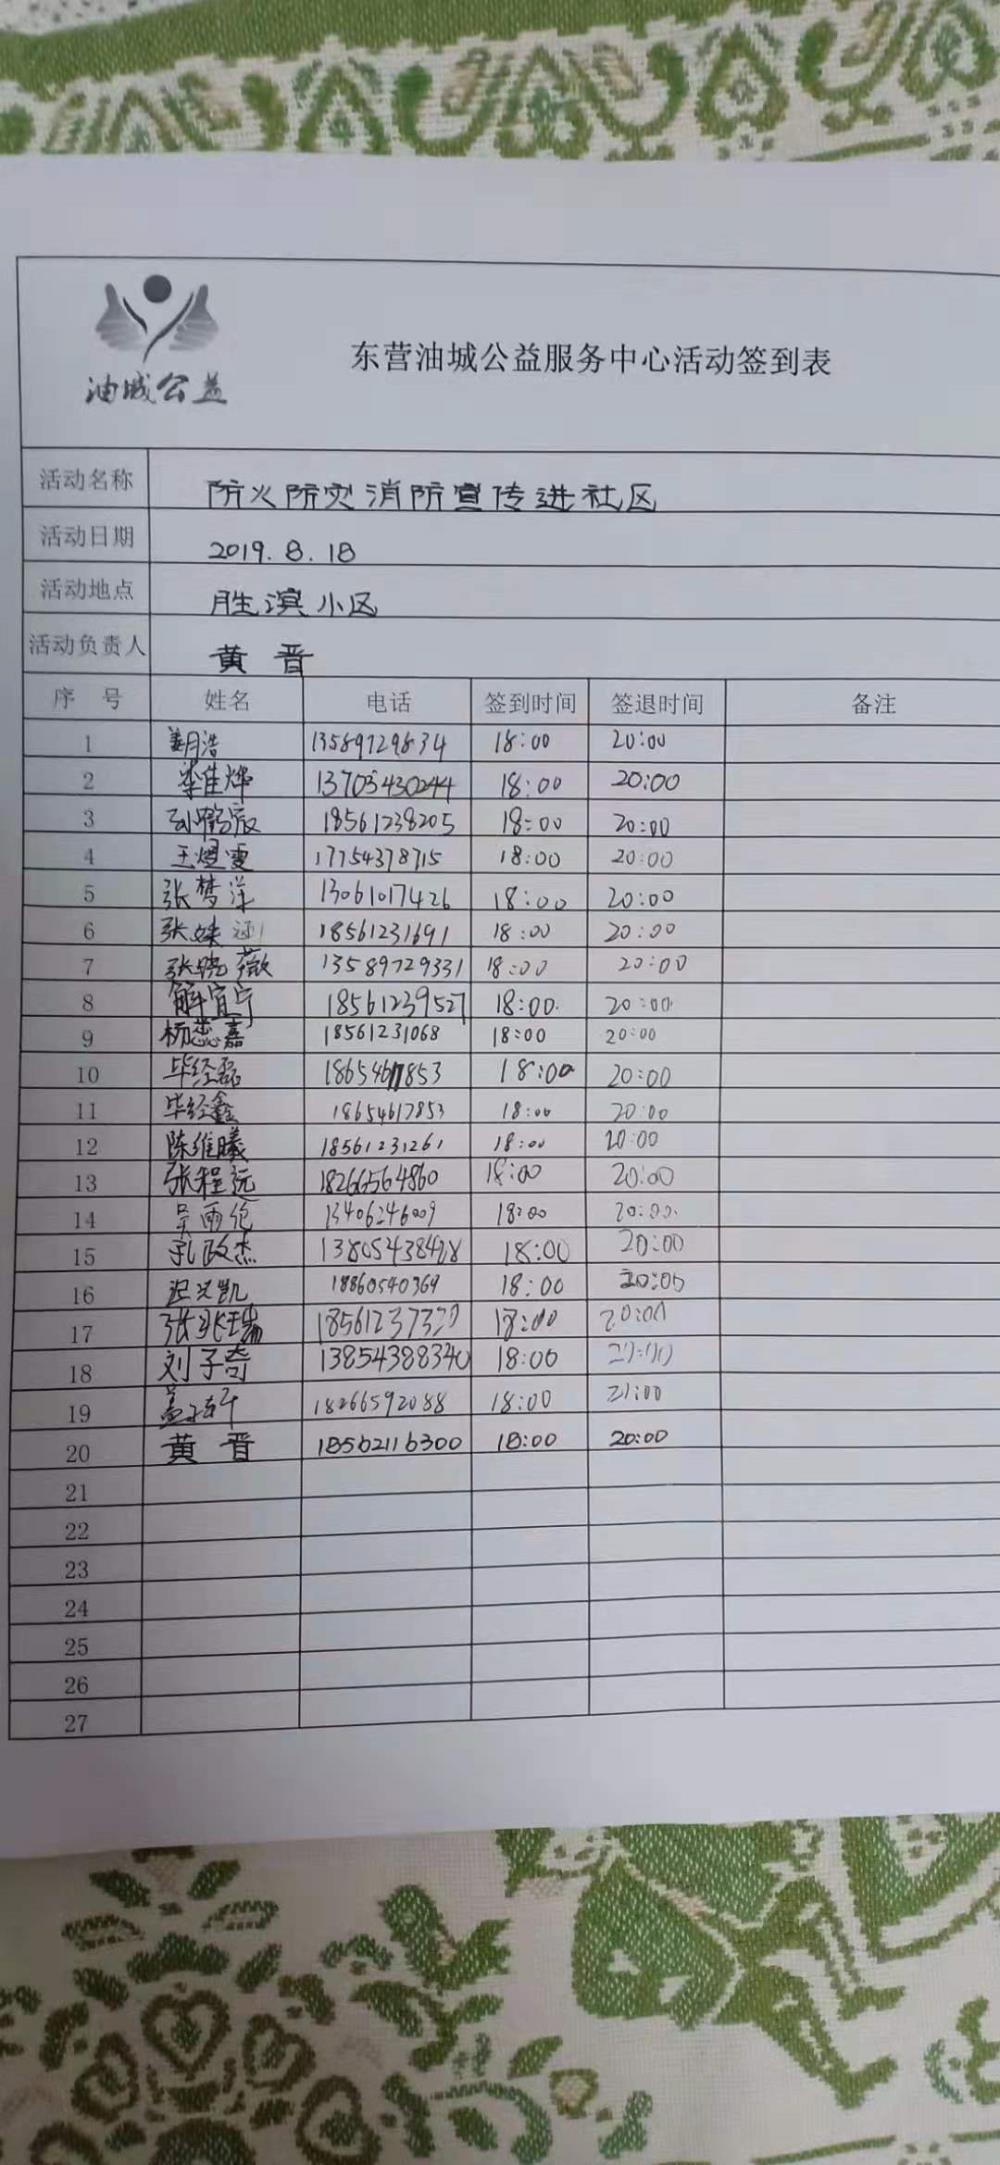 油城公益
东营油城公益服务中心活动签到表
活动名称 防火防灾消防宣传进社区
活动日期 2019.8.18
活动地点 胜滨小区
活动负责人 黄晋
序 号 姓名 电话 签到时间 签退时间 备注
1 13589729834 18:00 20:00
2 李佳烨 13705430244 18:00 20:00
3 18561238205 18:00 20:00
4 王煜雯 17754378715 18:00 20:00
5 张梦洋 13061017426 18:00 20:00
6 张姝涵 18561231691 18:00 20:00
7 张晓薇 13589729331 18:00 20:00
8 解宜宁 18561239527 18:00 20:00
9 杨蕊嘉 18561231068 18:00 20:00
10 毕经磊 18654617853 18:00 20:00
11 毕经鑫 18654617853 18:00 20:00
12 陈维曦 18561231261 18:00 20:00
13 张程远 18266564860 18:00 20:00
14 吴雨伦 13406246009 18:00 20:00
15 孔政杰 13805438428 18:00 20:00
16 18860540369 18:00 20:00
17 张兆瑞 18:00 20:00
18 刘子奇 13854388340 18:00
19 18266592088 18:00 21:00
20 黄晋 18562116300 18:00 20:00
21
22
23
24
25
26
27